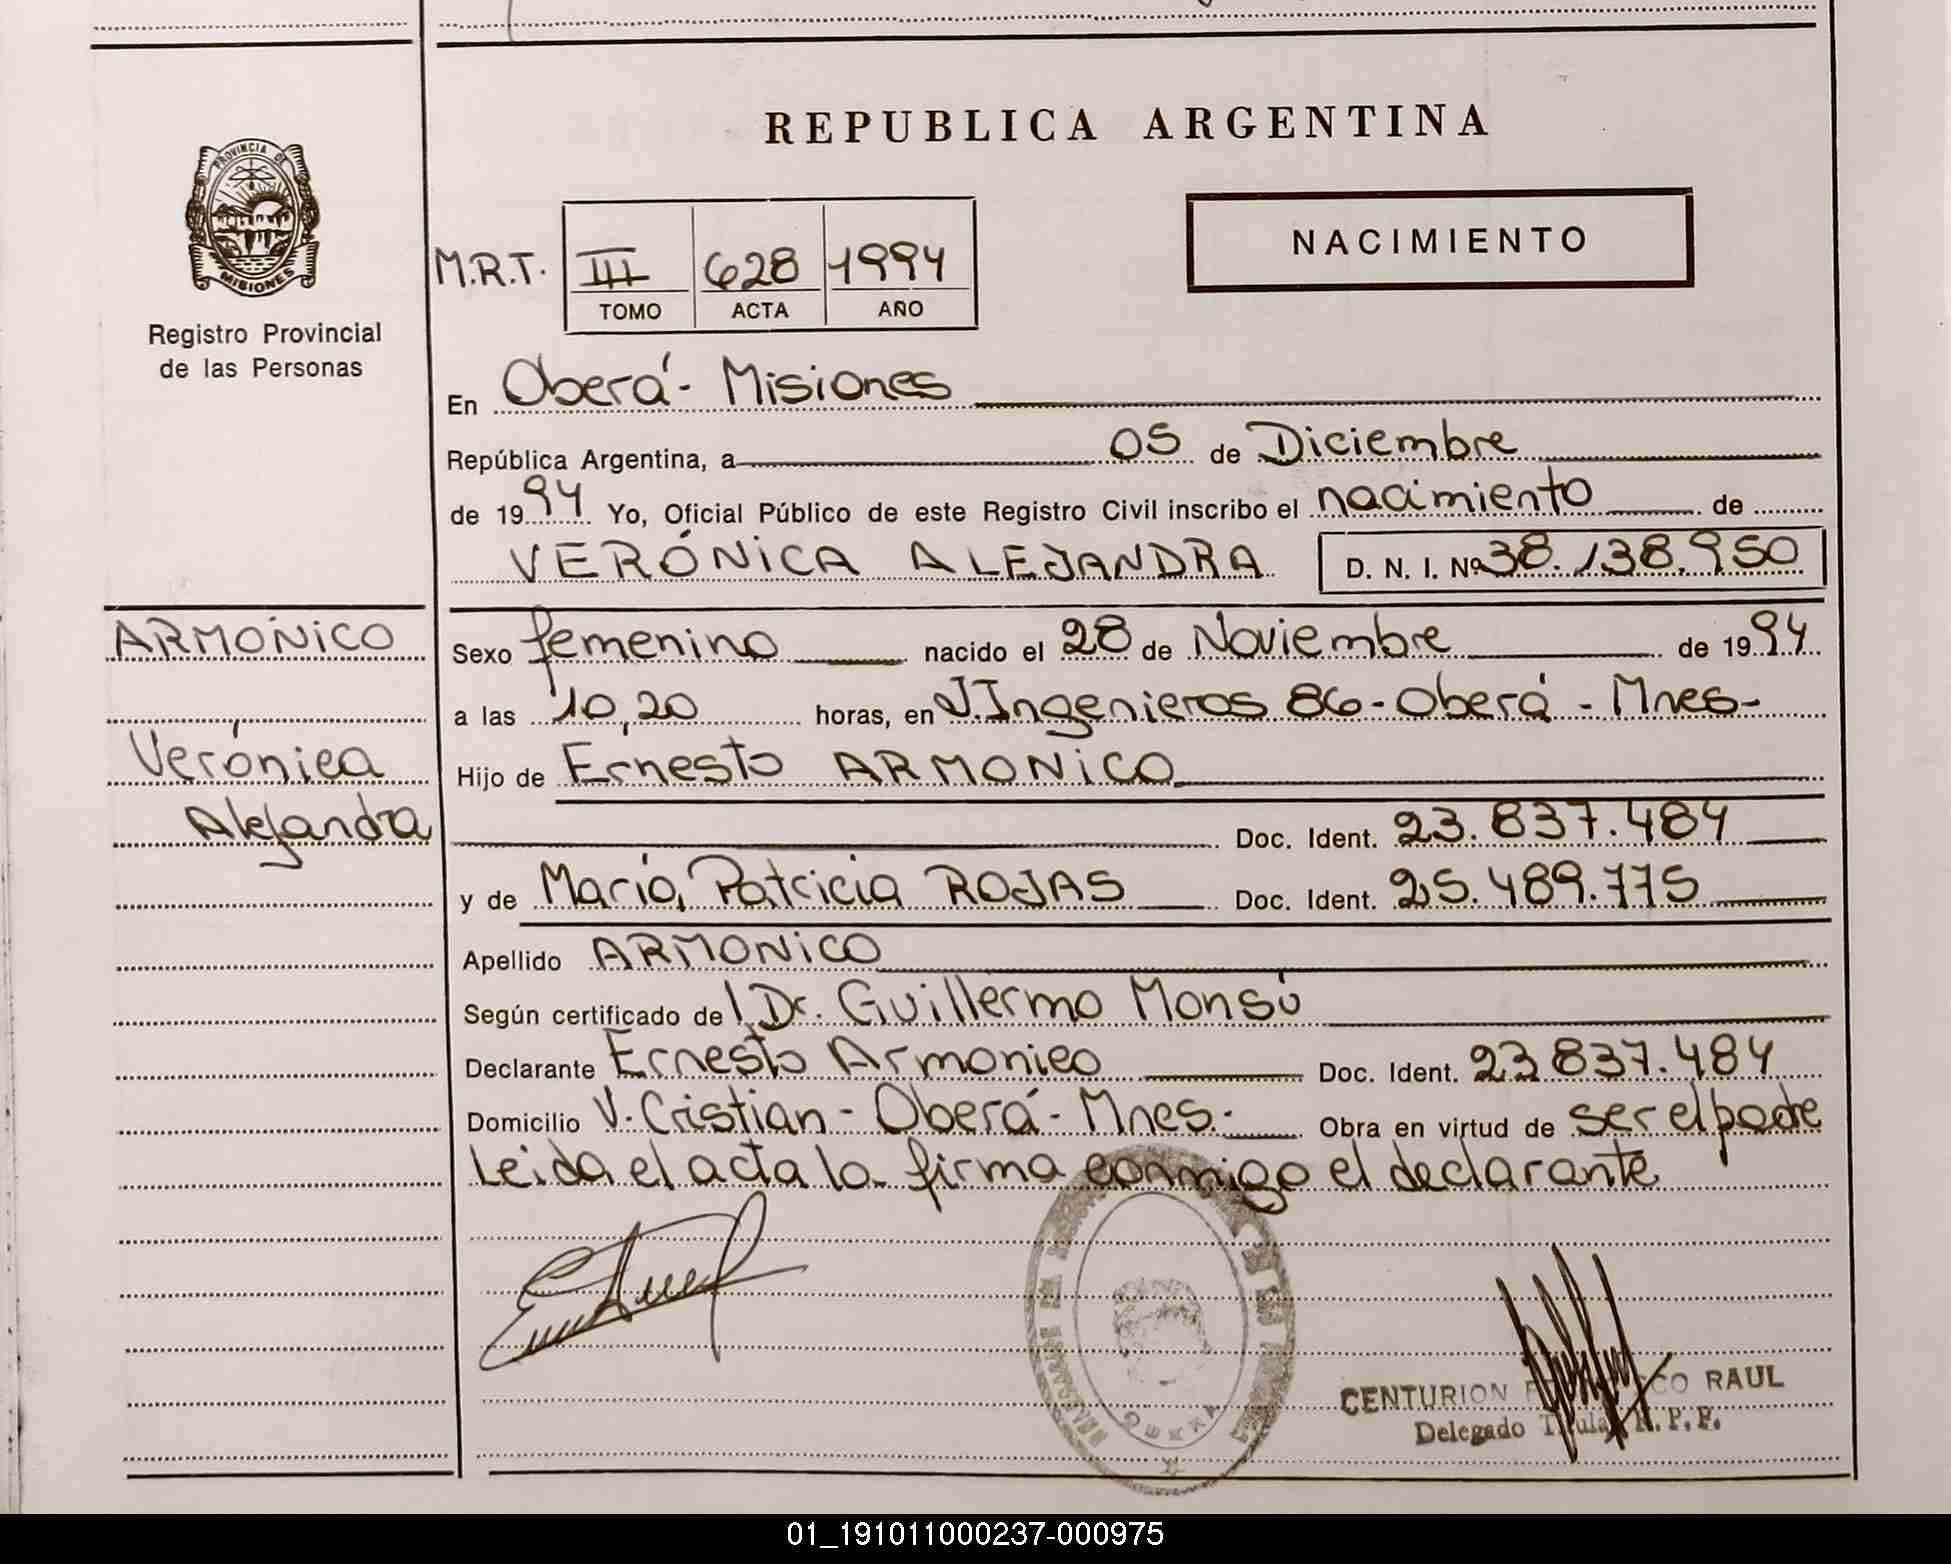 REPUBLICA ARGENTINA
PROVINCIA DE
MISIONES
Registro Provincial
de las Personas
M.R.T. III 628 1994
TOMO ACTA AÑO
NACIMIENTO
En Oberá - Misiones
República Argentina, a 05 de Diciembre
de 1994 Yo, Oficial Público de este Registro Civil inscribo el nacimiento de
VERÓNICA ALEJANDRA D. N. I. Nº 38.138.950
ARMONICO
Verónica
Alejandra
Sexo femenino nacido el 28 de Noviembre de 1994
a las 10,20 horas, en J.Ingenieros 86 - Oberá - Mnes-
Hijo de Ernesto ARMONICO
Doc. Ident. 23.837.484
y de María Patricia ROJAS Doc. Ident. 25.489.775
Apellido ARMONICO
Según certificado del Dr. Guillermo Monsú
Declarante Ernesto Armonico Doc. Ident. 23.837.484
Domicilio V. Cristian - Oberá - Mnes. Obra en virtud de ser el padre
Leida el acta la firma conmigo el declarante
CENTURION RAUL
Delegado Titular R. P. P.
01_191011000237-000975